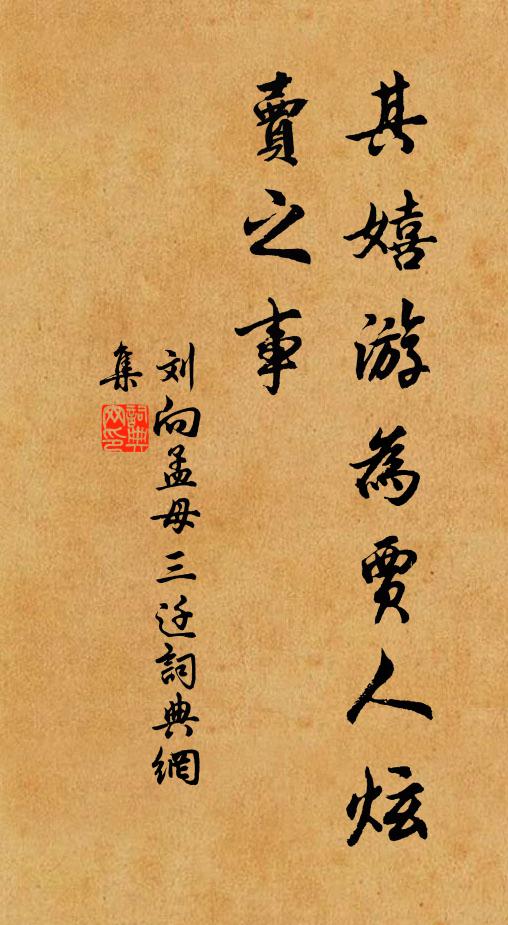 其嬉游為賈人炫
賣之事
刘向孟母三迁詞典網
集
詞典网印